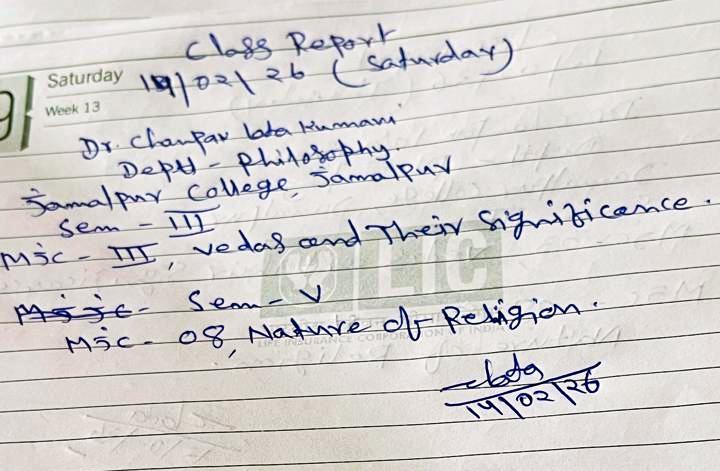 Class Report
Saturday 14/02/26 (Saturday)
Week 13
Dr. Champar lata Kumari
Deptt - Philosophy.
Jamalpur College, Jamalpur
Sem - III
MJC - III, Vedas and Their Significance.
LIC
Sem - V
MJC - 08, Nature of Religion.
LIFE INSURANCE CORPORATION OF INDIA
Lata
14/02/26